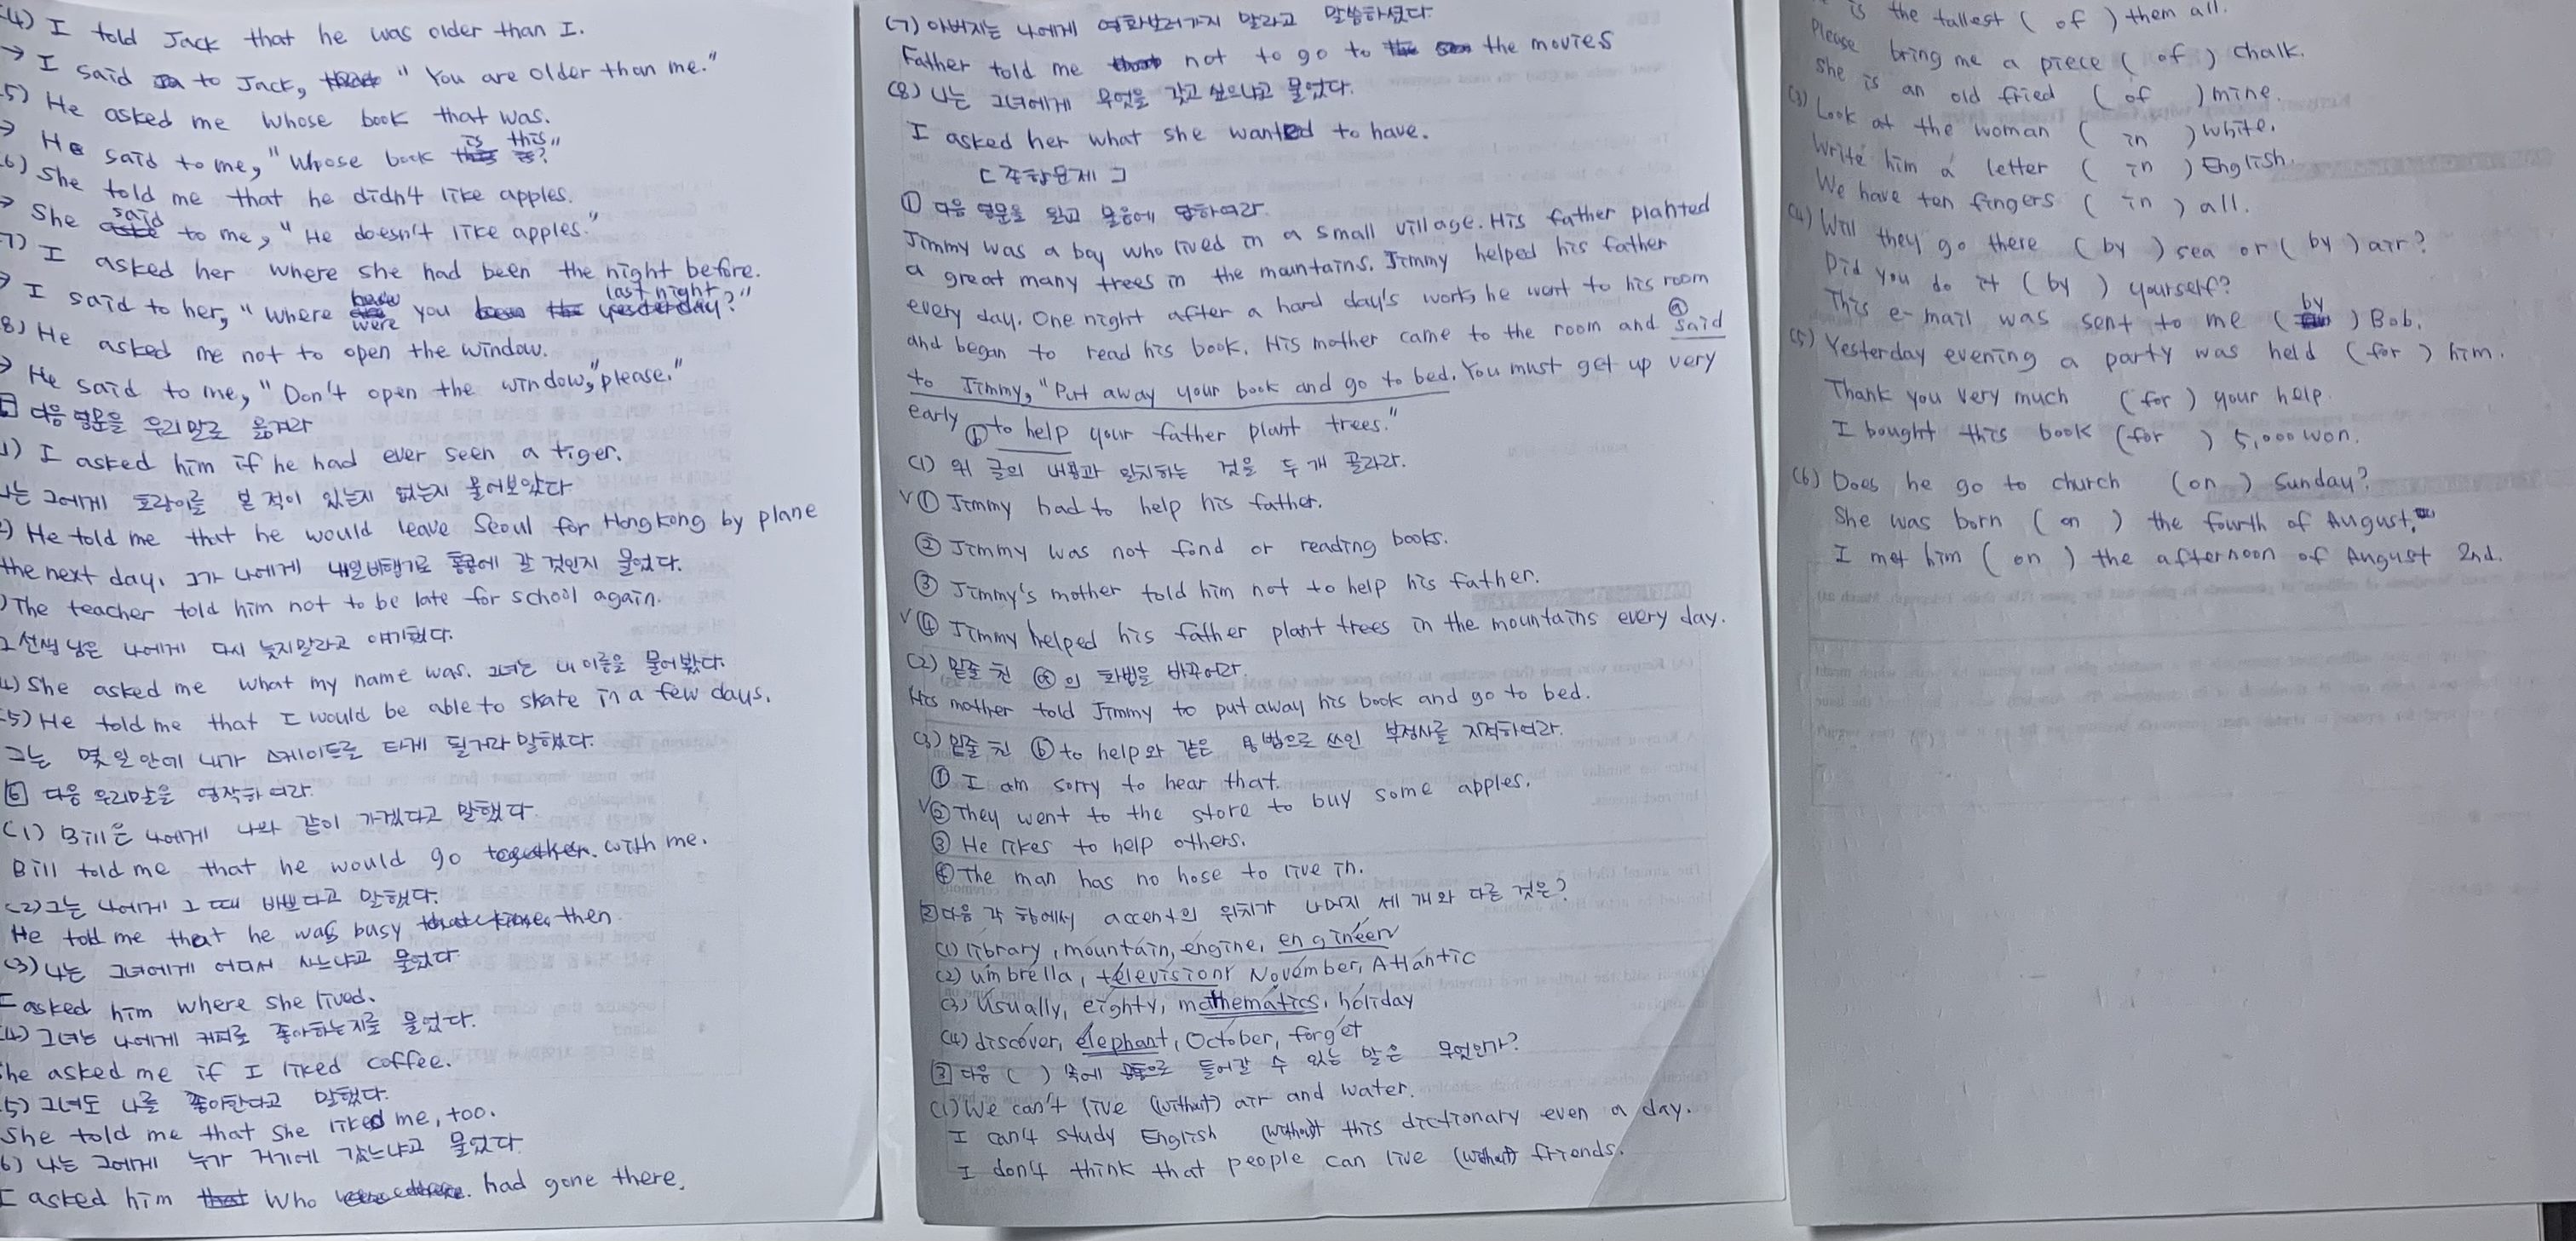 (4) I told Jack that he was older than I.
→ I said to Jack, "You are older than me."
5) He asked me whose book that was.
→ He said to me, "Whose book is this?"
6) She told me that he didn't like apples.
→ She said to me, "He doesn't like apples."
7) I asked her where she had been the night before.
→ I said to her, "Where were you last night?"
8) He asked me not to open the window.
→ He said to me, "Don't open the window, please."
5 다음 영문을 우리말로 옮겨라
1) I asked him if he had ever seen a tiger.
나는 그에게 호랑이를 본 적이 있는지 없는지 물어보았다
2) He told me that he would leave Seoul for HongKong by plane
the next day. 그가 나에게 내일 비행기로 홍콩에 갈 것인지 물었다.
) The teacher told him not to be late for school again.
그 선생님은 나에게 다시 늦지말라고 얘기했다.
4) She asked me what my name was. 그녀는 내 이름을 물어봤다.
5) He told me that I would be able to skate in a few days.
그는 몇 일 안에 내가 스케이트를 타게 될거라 말했다.
6 다음 우리말을 영작하여라
(1) Bill은 나에게 나와 같이 가겠다고 말했다.
Bill told me that he would go with me.
(2) 그는 나에게 그 때 바쁘다고 말했다.
He told me that he was busy then
(3) 나는 그녀에게 어디서 사느냐고 물었다
I asked him where she lived.
(4) 그녀는 나에게 커피를 좋아하는지를 물었다.
She asked me if I liked coffee.
5) 그녀도 나를 좋아한다고 말했다.
She told me that she liked me, too.
6) 나는 그에게 누가 거기에 갔느냐고 물었다
I asked him who had gone there.
(7) 아버지는 나에게 영화보러가지 말라고 말씀하셨다.
Father told me not to go to the movies
(8) 나는 그녀에게 무엇을 갖고 싶으냐고 물었다.
I asked her what she wanted to have.
[종합문제]
① 다음 영문을 읽고 물음에 답하여라.
Jimmy was a boy who lived in a small village. His father planted
a great many trees in the mountains. Jimmy helped his father
every day. One night after a hard day's work, he went to his room
and began to read his book. His mother came to the room and ⓐ said
to Jimmy, "Put away your book and go to bed. You must get up very
early ⓑ to help your father plant trees."
(1) 위 글의 내용과 일치하는 것을 두 개 골라라.
√① Jimmy had to help his father.
② Jimmy was not fond or reading books.
③ Jimmy's mother told him not to help his father.
√④ Jimmy helped his father plant trees in the mountains every day.
(2) 밑줄 친 ⓐ의 화법을 바꾸어라.
His mother told Jimmy to put away his book and go to bed.
(3) 밑줄 친 ⓑ to help와 같은 용법으로 쓰인 부정사를 지적하여라.
① I am sorry to hear that.
√② They went to the store to buy some apples.
③ He likes to help others.
④ The man has no hose to live in.
2 다음 각 항에서 accent의 위치가 나머지 세 개와 다른 것은?
(1) library, mountain, engine, engineer
(2) umbrella, television, November, Atlantic
(3) usually, eighty, mathematics, holiday
(4) discover, elephant, October, forget
3 다음 ( ) 속에 공통으로 들어갈 수 있는 말은 무엇인가?
(1) We can't live (without) air and water.
I can't study English (without) this dictionary even a day.
I don't think that people can live (without) friends.
is the tallest ( of ) them all.
Please bring me a piece ( of ) chalk.
She is an old fried ( of ) mine.
(3) Look at the woman ( in ) white.
Write him a letter ( in ) English.
We have ten fingers ( in ) all.
(4) Will they go there ( by ) sea or ( by ) air?
Did you do it ( by ) yourself?
This e-mail was sent to me ( by ) Bob.
(5) Yesterday evening a party was held ( for ) him.
Thank you very much ( for ) your help.
I bought this book ( for ) 5,000 won.
(6) Does he go to church ( on ) Sunday?
She was born ( on ) the fourth of August.
I met him ( on ) the afternoon of August 2nd.